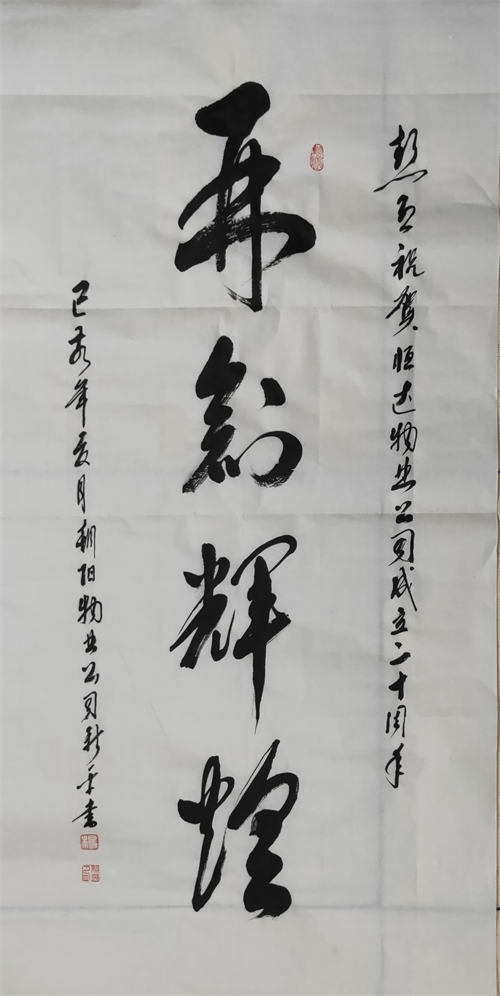 热烈祝贺恒达物业公司成立二十周年
再創輝煌
己亥年亥月朝阳物业公司新平书